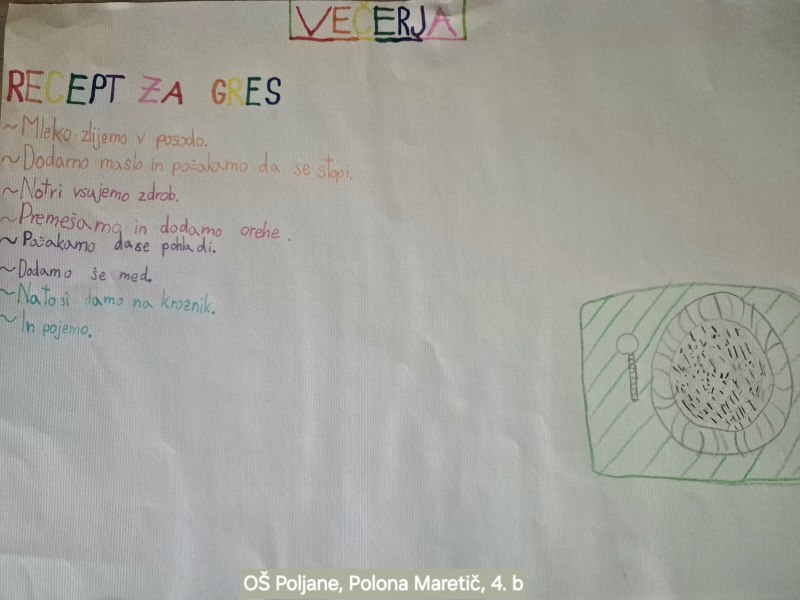 VEČERJA
RECEPT ZA GRES
~Mleko zlijemo v posodo.
~Dodamo maslo in počakamo da se stopi.
~Notri vsujemo zdrob.
~Premešamo in dodamo orehe.
~Počakamo da se pohladi.
~Dodamo še med.
~Nato si damo na krožnik.
~In pojemo.
OŠ Poljane, Polona Maretič, 4. b